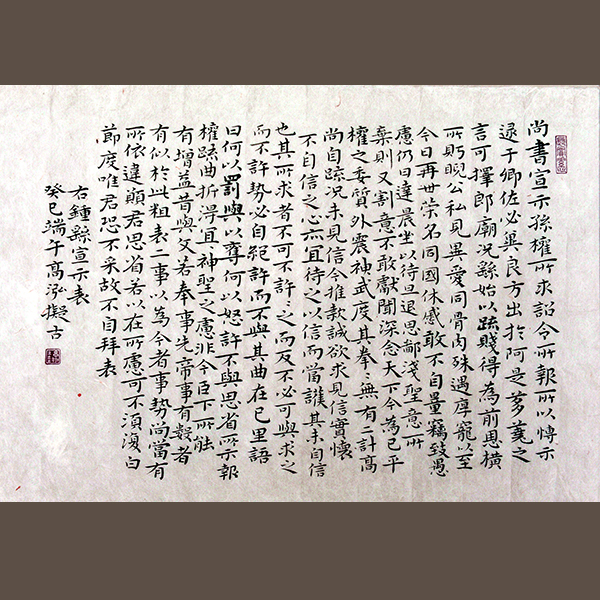 尚書宣示孫權所求詔令所報所以博示
逯于卿佐必冀良方出於阿是芻蕘之
言可擇郎廟況繇始以疏賤得為前恩橫
所睨公私見異愛同骨肉殊遇厚寵以至
今日再世榮名同國休慼敢不自量竊致愚
慮仍日達晨坐以待旦退思鄙淺聖意所
棄則又割意不敢獻聞深念天下今為已平
權之委質外震神武度其拳々無有二計高
尚自疏況未見信今推款誠欲求見信實懷
不自信之心亦宜待之以信而當護其未自信
也其所求者不可不許々之而反不必可與求之
而不許勢必自絕許而不與其曲在己里語
曰何以罰與以奪何以怒許不與思省所示報
權疏曲折得宜々神聖之慮非今臣下所能
有增益昔與文若奉事先帝事有數者
有似於此粗表二事以為今者事勢尚當有
所依違願君思省若以在所慮可不須復白
節度唯君恐不采故不自拜表
右鍾繇宣示表
癸巳端午高泓擬古